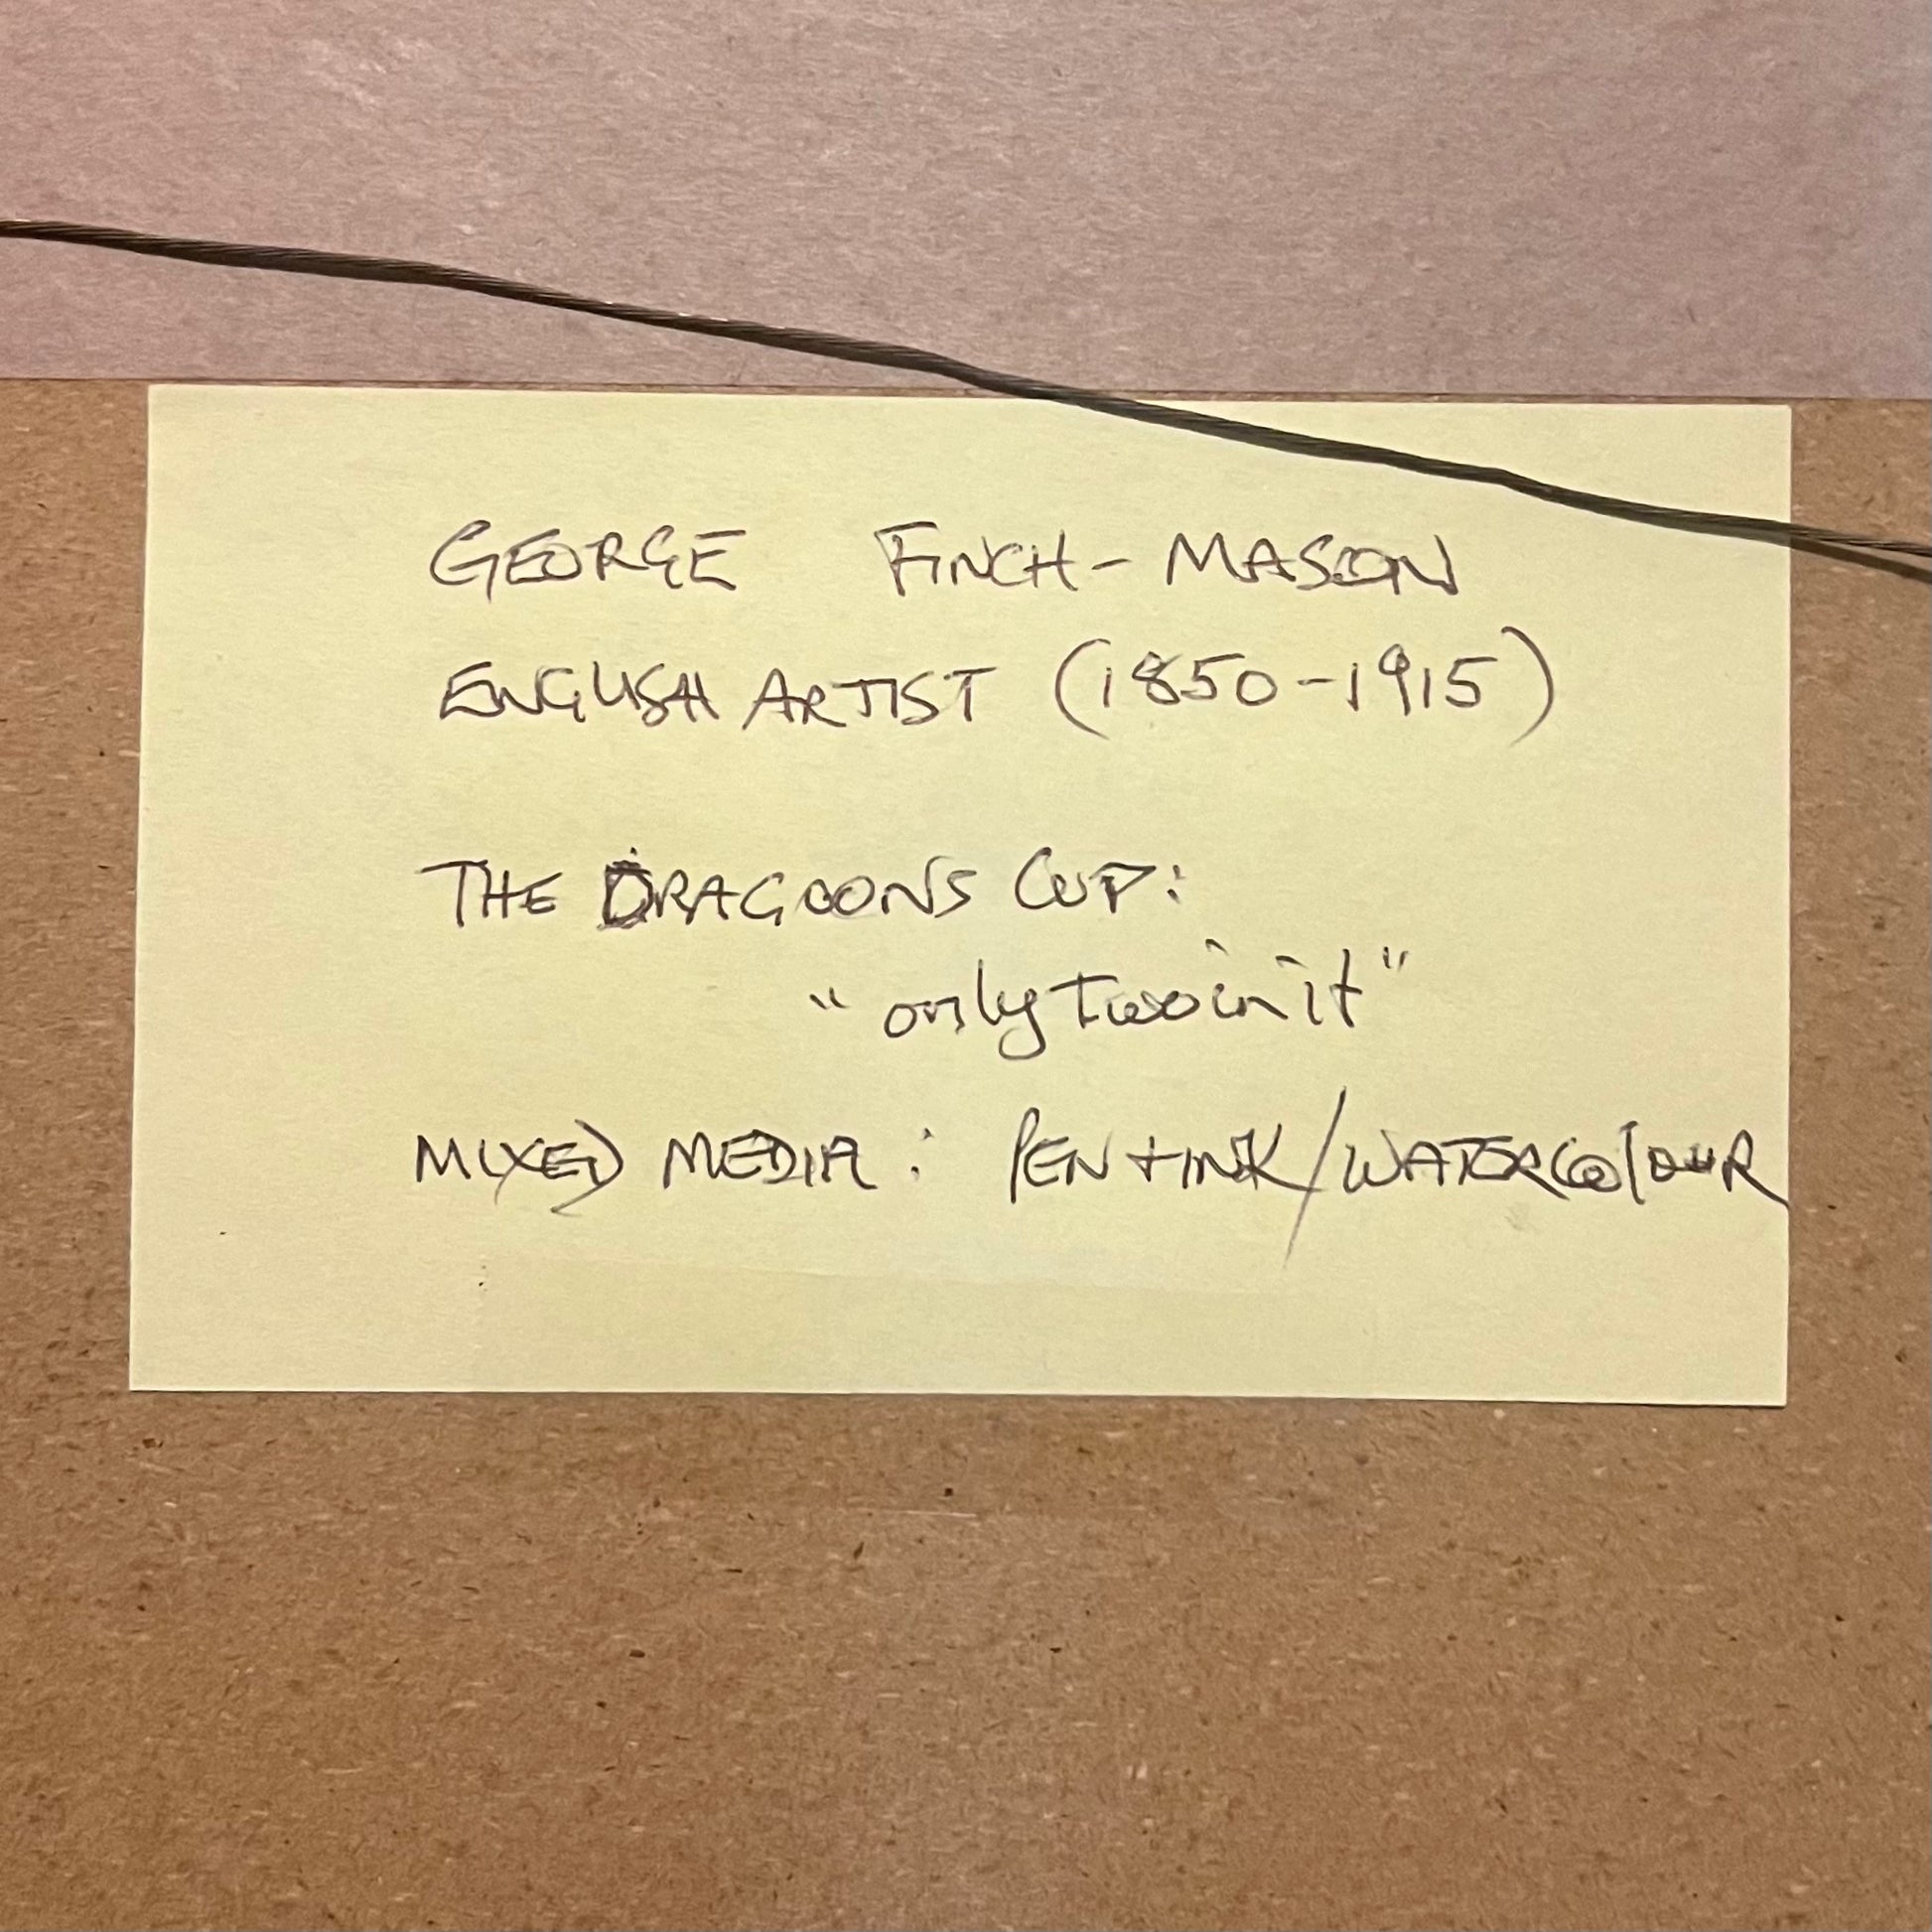 GEORGE FINCH-MASON
ENGLISH ARTIST (1850-1915)
THE DRAGOONS CUP:
"only two in it"
MIXED MEDIA: PEN + INK/WATERCOLOUR